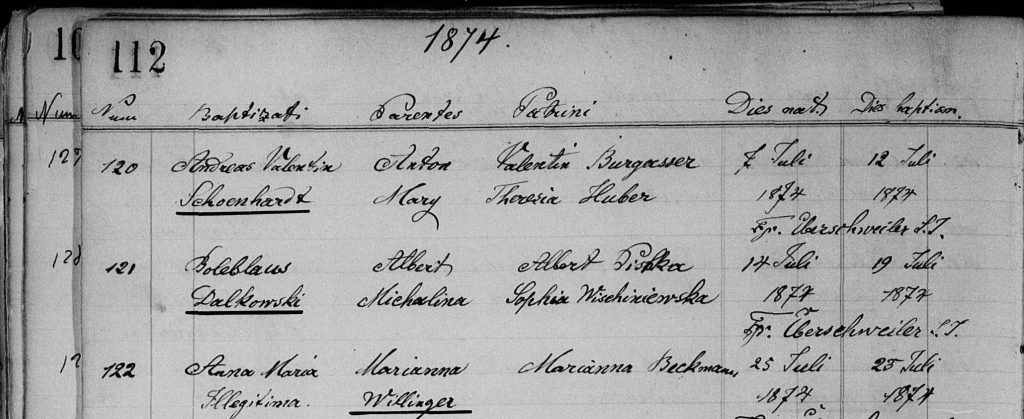 10 112 1874.
Num Num Baptizati Parentes Patrini Dies nat. Dies baptism.
127 120 Andreas Valentin Anton Valentin Burgasser 7 Juli 12 Juli
Schoenhardt Mary Theresia Huber 1874 1874
Fr. Überschweiler S.J.
128 121 Boleblaus Albert Albert Pistka 14 Juli 19 Juli
Dalkowski Michalina Sophia Wischiniewska 1874 1874
Fr. Überschweiler S.J.
12 122 Anna Maria Marianna Marianna Beckmann 25 Juli 25 Juli
Illegitima. Willinger 1874 1874